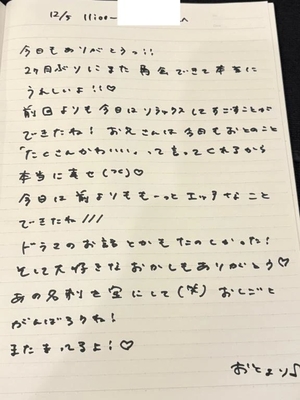 12/5 11:00〜
今日もありがとうっ!!
2ヶ月ぶりにまた再会できて本当に
うれしいよ!!♡
前回よりも今日はリラックスしてすごすことが
できたね! お兄さんは今日もおとのこと
「たくさんかわいい。」って言ってくれるから
本当に幸せ(つく)♡
今日は前よりももーっとエッチなこと
できたね///
ドラマのお話とかもたのしかった!
そして大好きなおかしもありがとう♡
あの名刺を宝にして(笑)おしごと
がんばろうね!
またまってるよ!♡
おとより♪